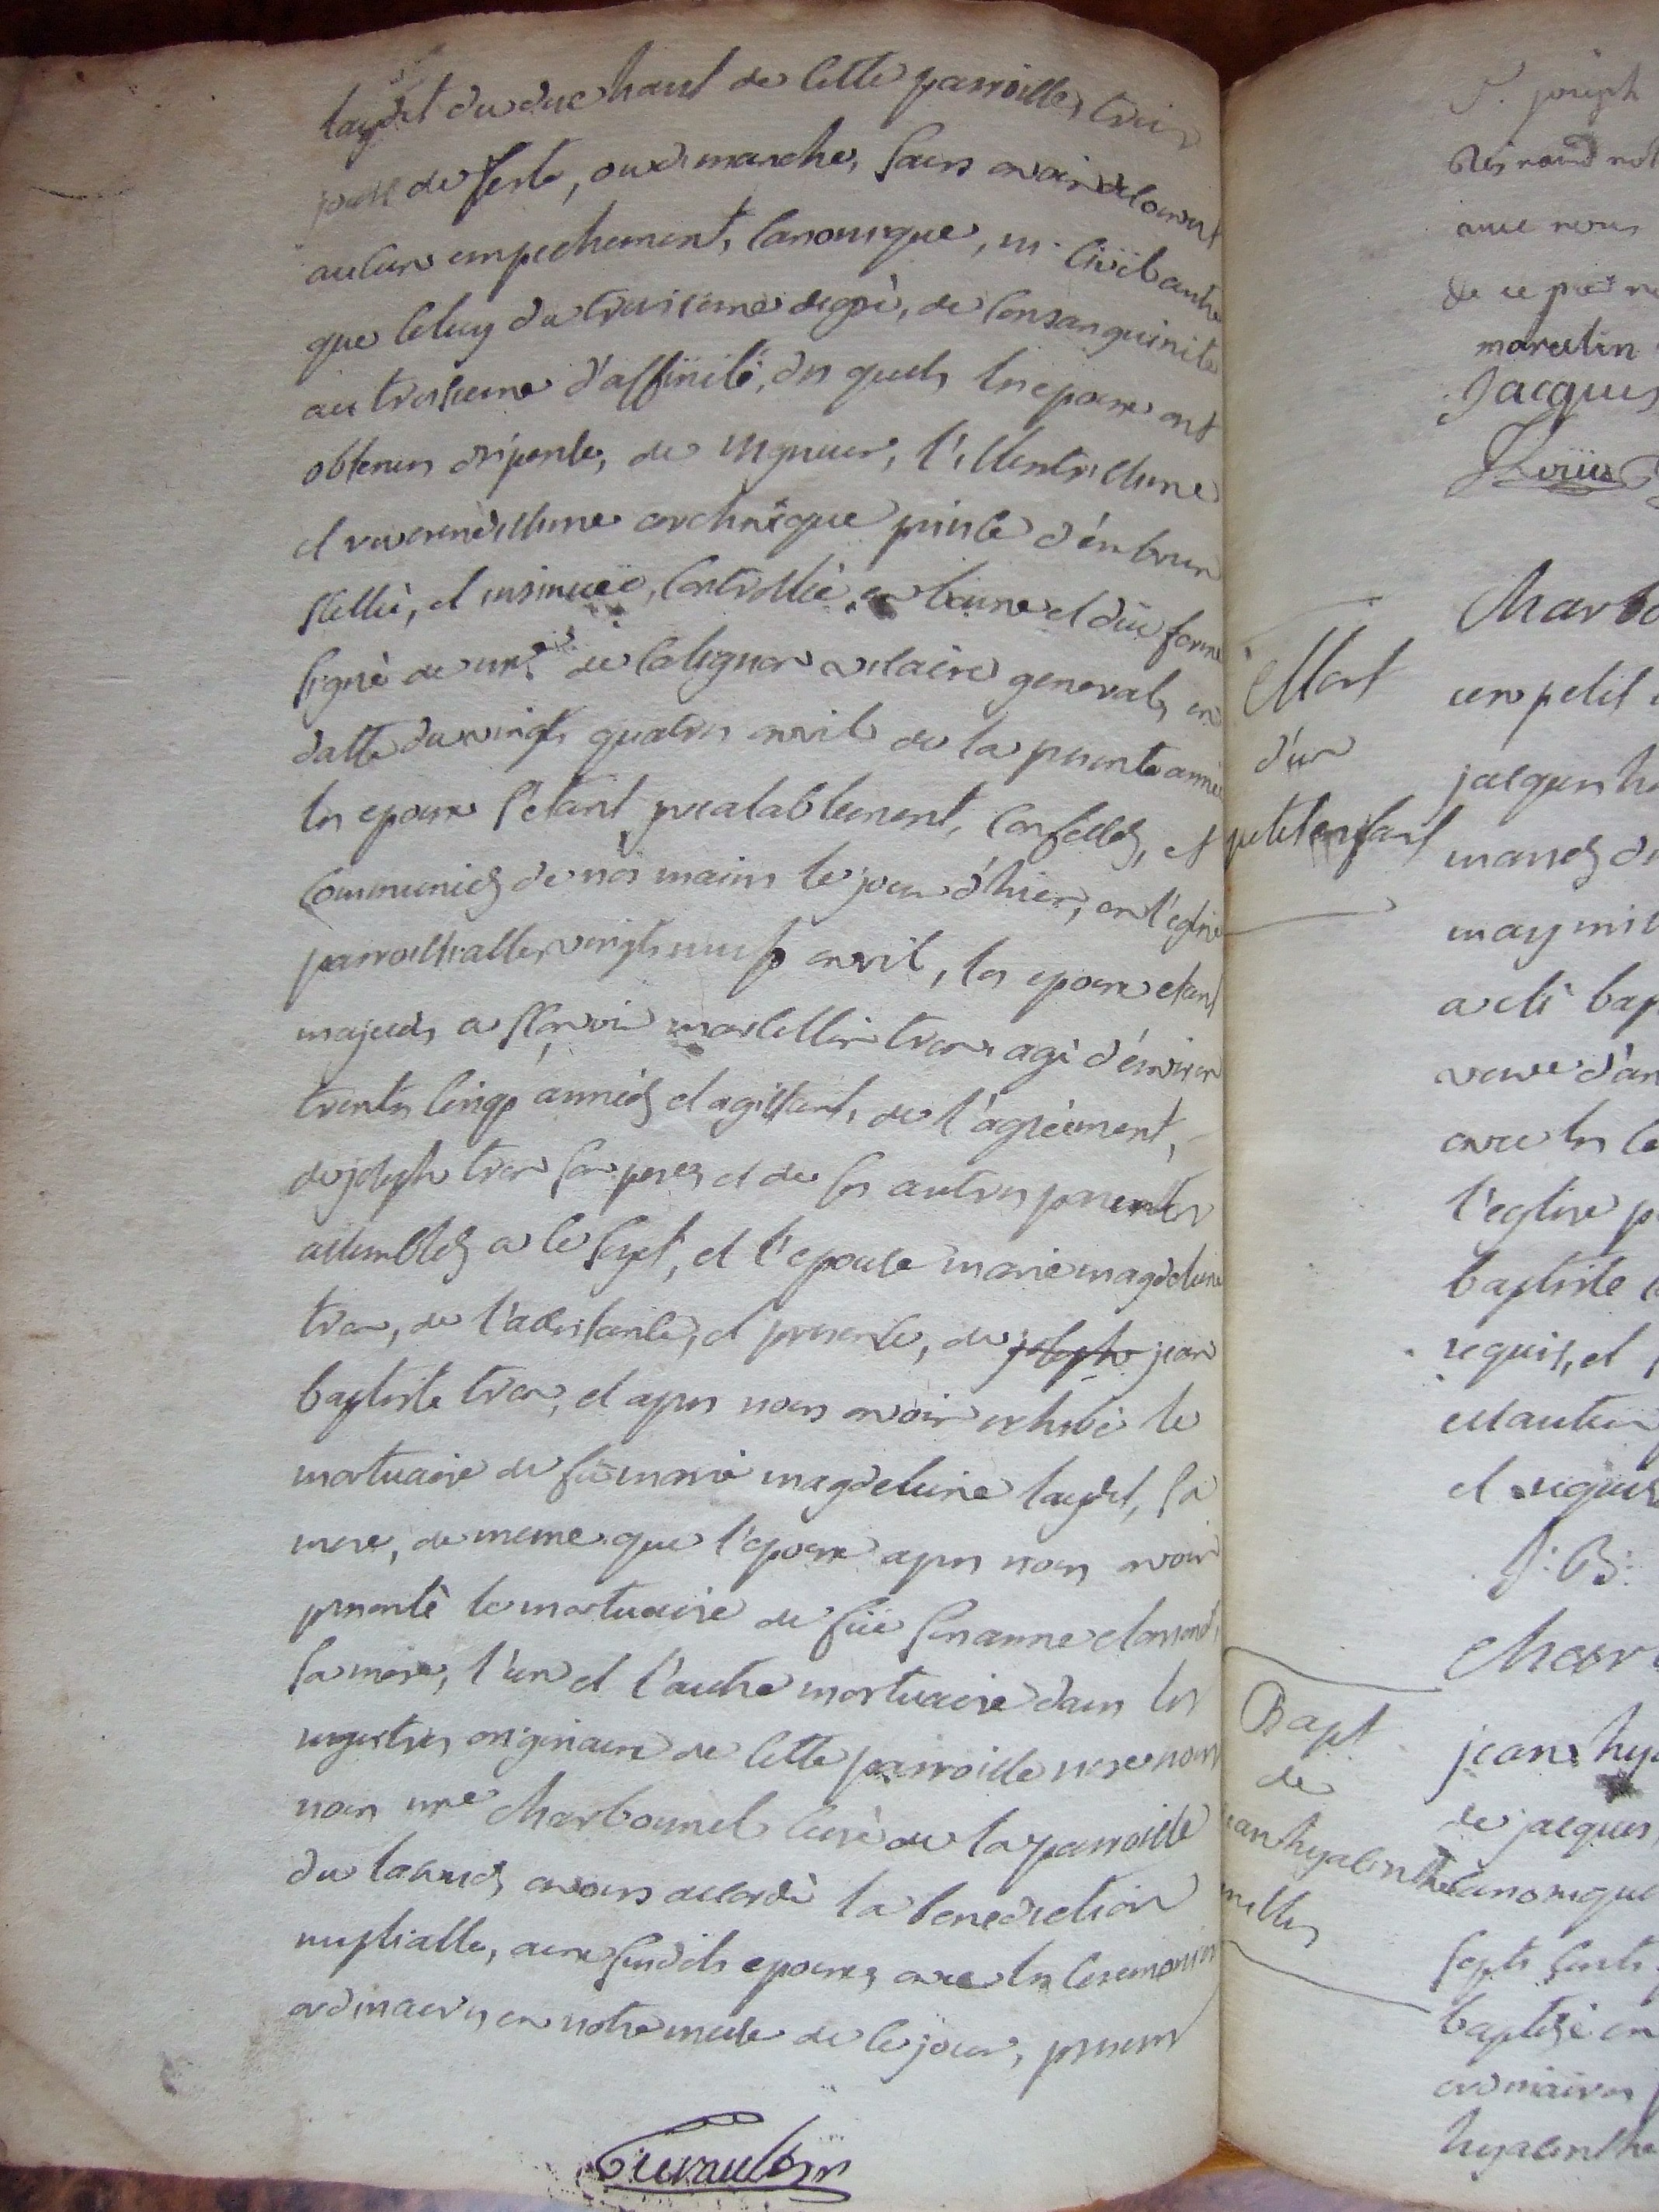 laydet du duc haut de cette parroisse, trois
jours de feste, ou dimanche, sans avoir decouvert
aucun empechement, canonique, ni civil autre
que celuy du troisieme degrè, de consanguinité
au troisieme d'affinité, des quels les epoux ont
obtenus dispense, de mgneur, l'illustrissime
et reverendissime archeveque prince d'émbrun
scellée, et insinueë, controllèe, en bonne et düe forme
signè de mre de calignon vicaire general, en
datte du vingt quatre avril de la presente année
les epoux s'etant prealablement, confessés, et
communiés de nos mains le jour d'hier, en l'eglise
parroissialle, vingt neuf avril, les epoux etant
majeurs a sçavoir marcellin tron agé d'énviron
trente cinq années et agissant, de l'agréement,
de joseph tron son pere, et de ses autres parents
assemblés a ce sujet, et l'epouse marie magdeleine
tron, de l'assistance, et presence, de joseph jean
baptiste tron, et apres nous avoir exhibé le
mortuaire de füe marie magdeleine laydet, sa
mere, de meme que l'epoux apres nous avoir
presentè le mortuaire de füe susanne
sa mere, l'un et l'autre mortuaire dans les
registres originaux de cette parroisse
nous mre Charbonnel curè de la parroisse
du lauzet, avons accordè la benediction
nuptialle, aux susdits epoux, avec les ceremonies
ordinaires, en notre messe de ce jour, presens
Mort
d'un
petit enfant
Bapt
de
jean hyacinthe
S. joseph
avec nous
marcelin
Jacques
Charbo
un petit
jacques
a eté bap
avec les
l'eglise
baptiste
requis, et
et requis
J: B:
Char
jean hya
de jacques
canonique
sept cents
baptisé en
ordinaires
hyacinthe